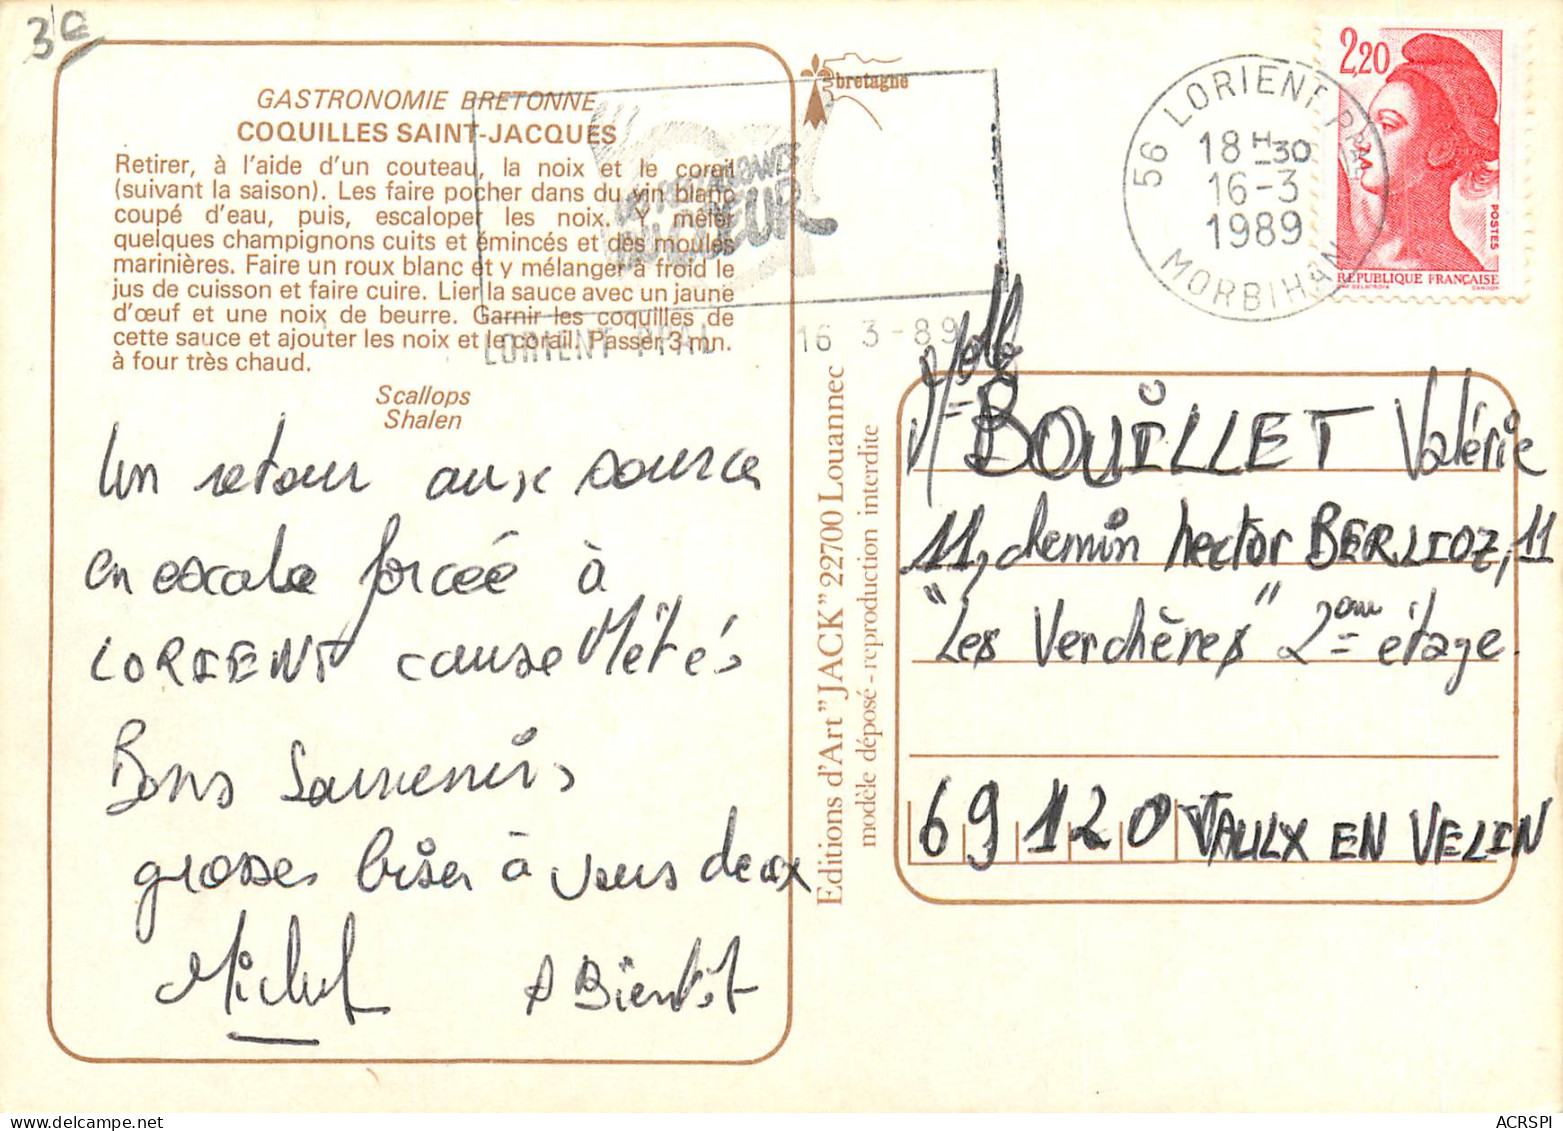 3e
GASTRONOMIE BRETONNE
COQUILLES SAINT-JACQUES
Retirer, à l'aide d'un couteau, la noix et le corail
(suivant la saison). Les faire pocher dans du vin blanc
coupé d'eau, puis, escaloper les noix. Y mêler
quelques champignons cuits et émincés et des moules
marinières. Faire un roux blanc et y mélanger à froid le
jus de cuisson et faire cuire. Lier la sauce avec un jaune
d'œuf et une noix de beurre. Garnir les coquilles de
cette sauce et ajouter les noix et le corail. Passer 3 mn.
à four très chaud.
Scallops
Shalen
Un retour aux source
en escale forcée à
LORIENT cause Météo
Bons Souvenirs
grosses bises à vous deux
Michel
A Bientôt
bretagne
LORIENT PPAL 16 3-89
Editions d'Art "JACK" 22700 Louannec
modèle déposé - reproduction interdite
56 LORIENT PPAL
18 H 30
16-3
1989
MORBIHAN
2,20
POSTES
REPUBLIQUE FRANÇAISE
Melle
BOUILLET Valérie
11, chemin hector BERLIOZ, 11
"Les Verchères" 2ème étage.
69120 VAULX EN VELIN
ACRSPI